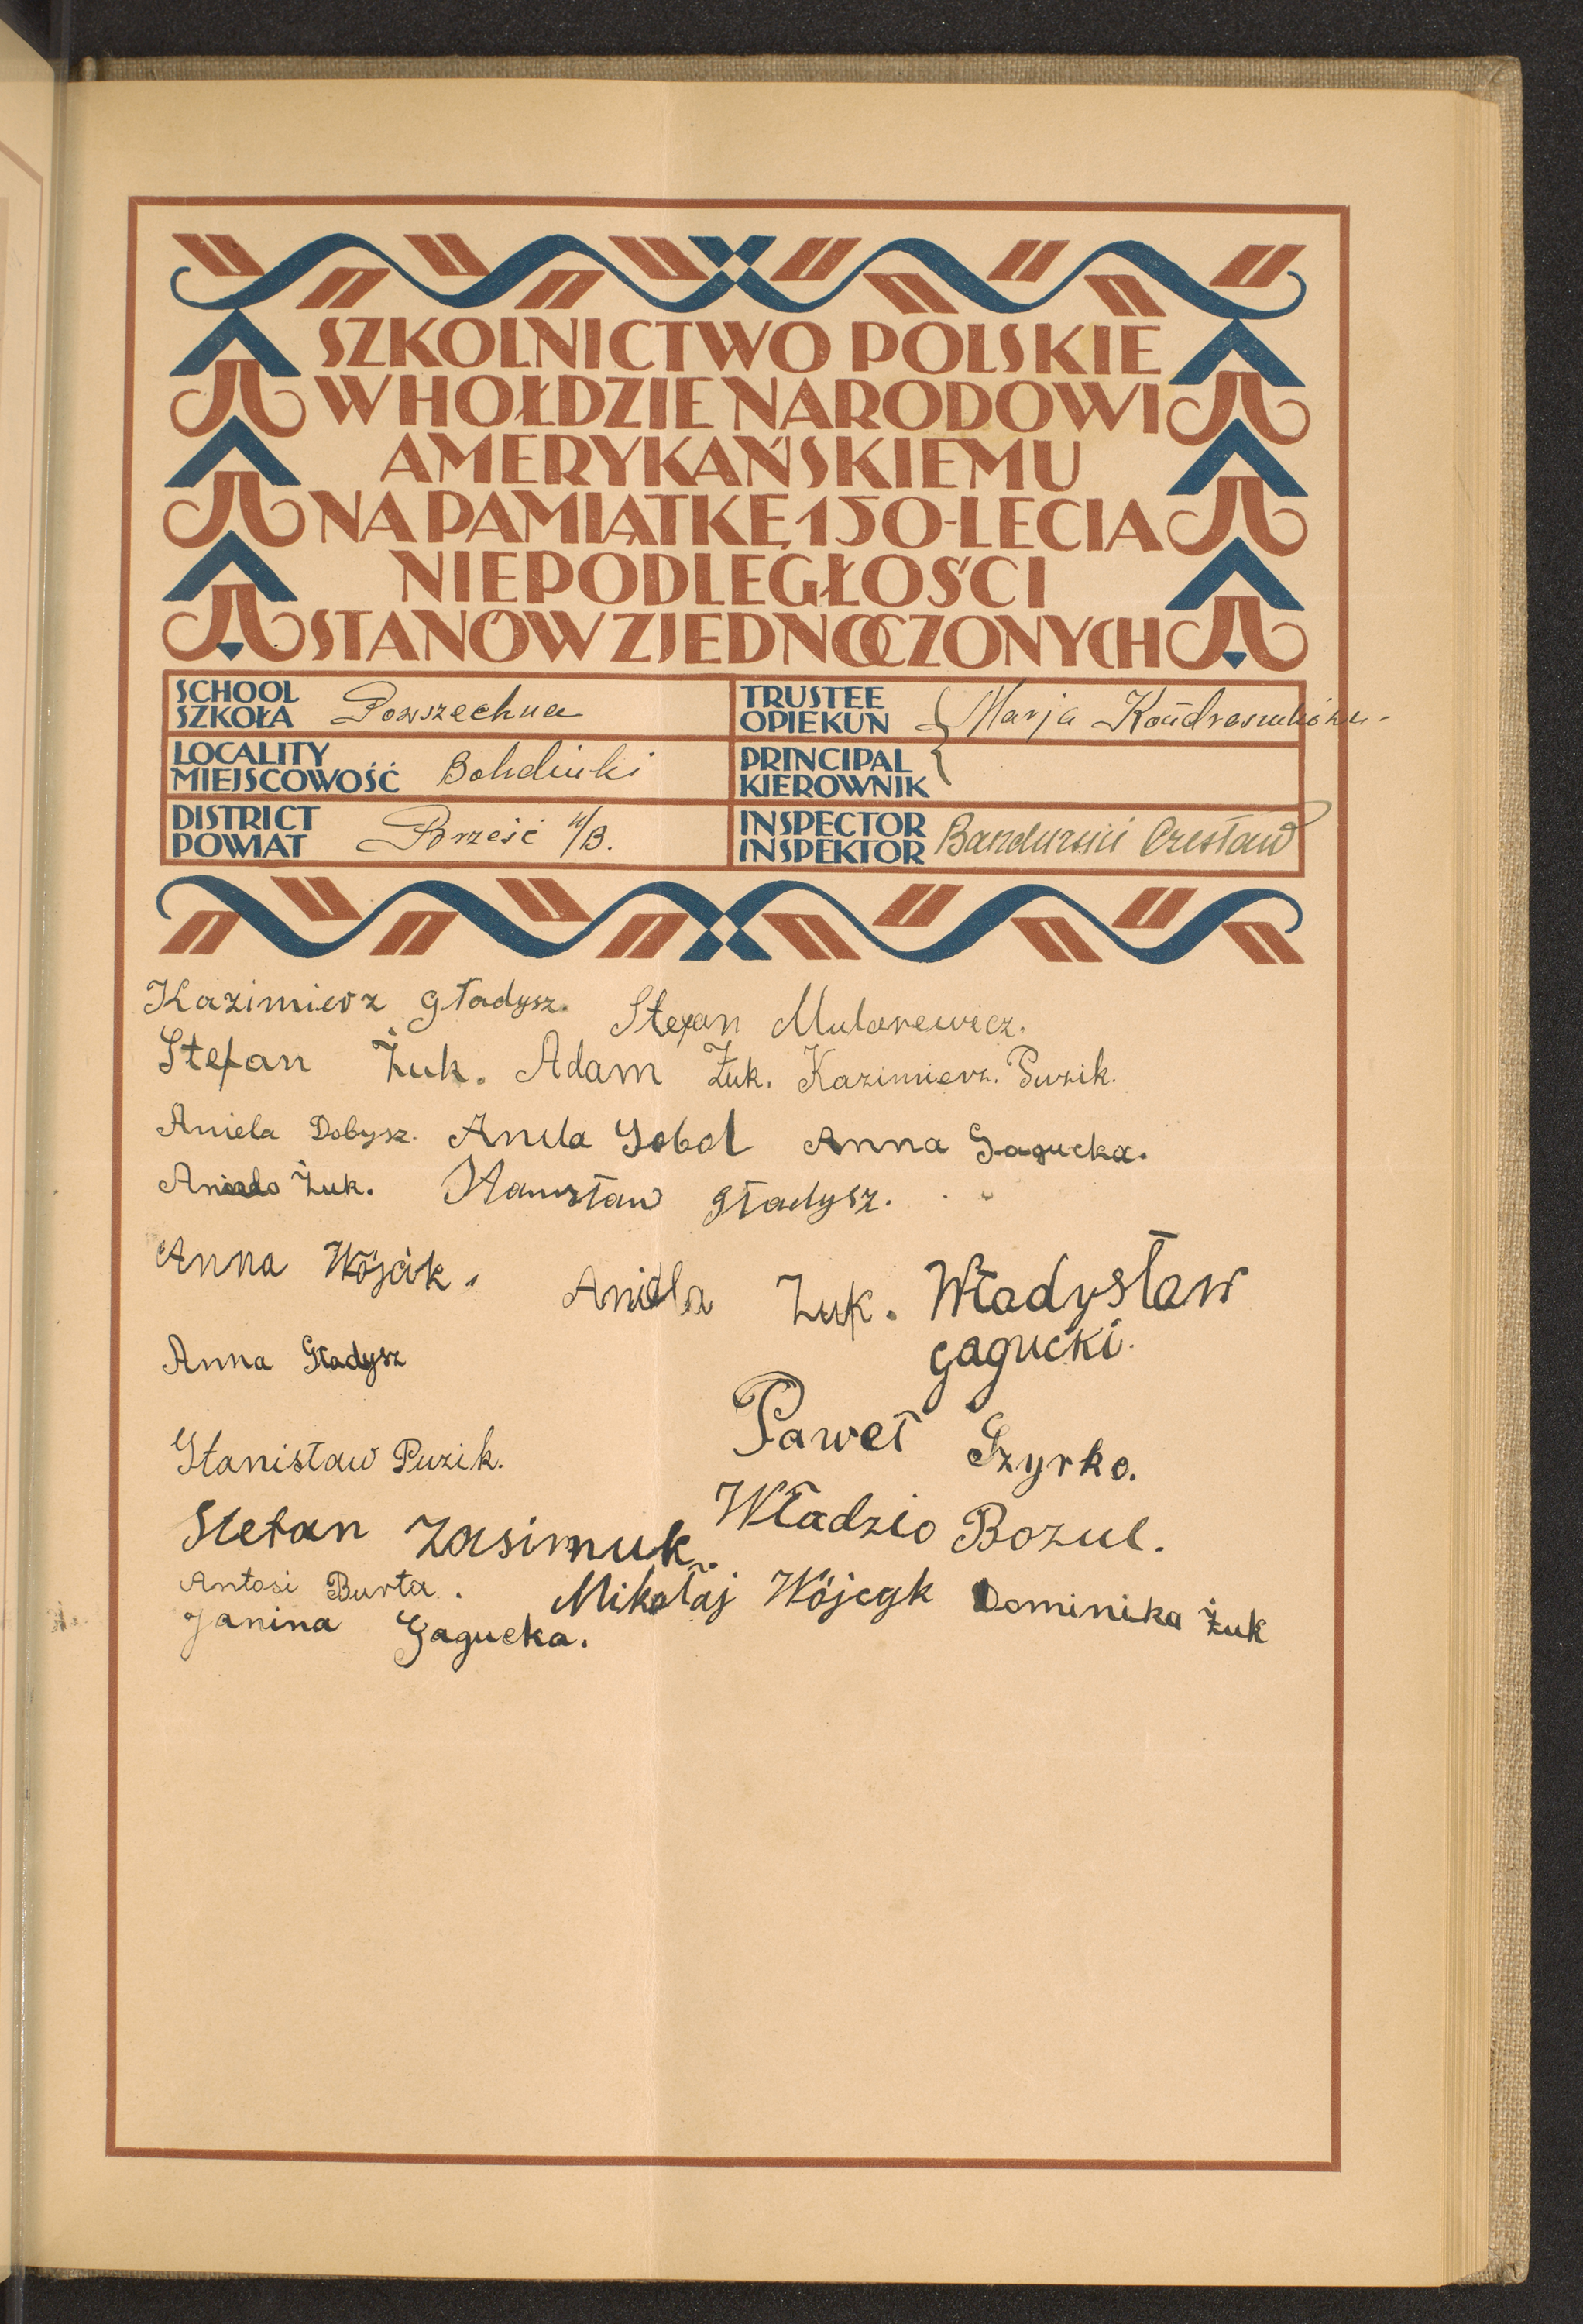 SZKOLNICTWO POLSKIE
W HOŁDZIE NARODOWI
AMERYKAŃSKIEMU
NA PAMIĄTKĘ 150-LECIA
NIEPODLEGŁOŚCI
STANÓW ZJEDNOCZONYCH
SCHOOL
SZKOŁA Powszechna
LOCALITY
MIEJSCOWOŚĆ Bohdiuki
DISTRICT
POWIAT Brześć n/B.
TRUSTEE
OPIEKUN Marja
PRINCIPAL
KIEROWNIK
INSPECTOR
INSPEKTOR Bandurski Czesław
Kazimierz Gładysz. Stefan Mularewicz.
Stefan Żuk. Adam Żuk. Kazimierz. Puzik.
Aniela Dobysz. Aniela Sobol Anna Gagucka.
Aniela Żuk. Stanisław Gładysz.
Anna Wójcik. Aniela Żuk. Władysław
Gagucki.
Anna Gładysz
Paweł Szyrko.
Stanisław Puzik.
Władzio Bozul.
Stefan Zasimuk.
Antosi Burta. Mikołaj Wójcyk Dominika Żuk
Janina Gagucka.